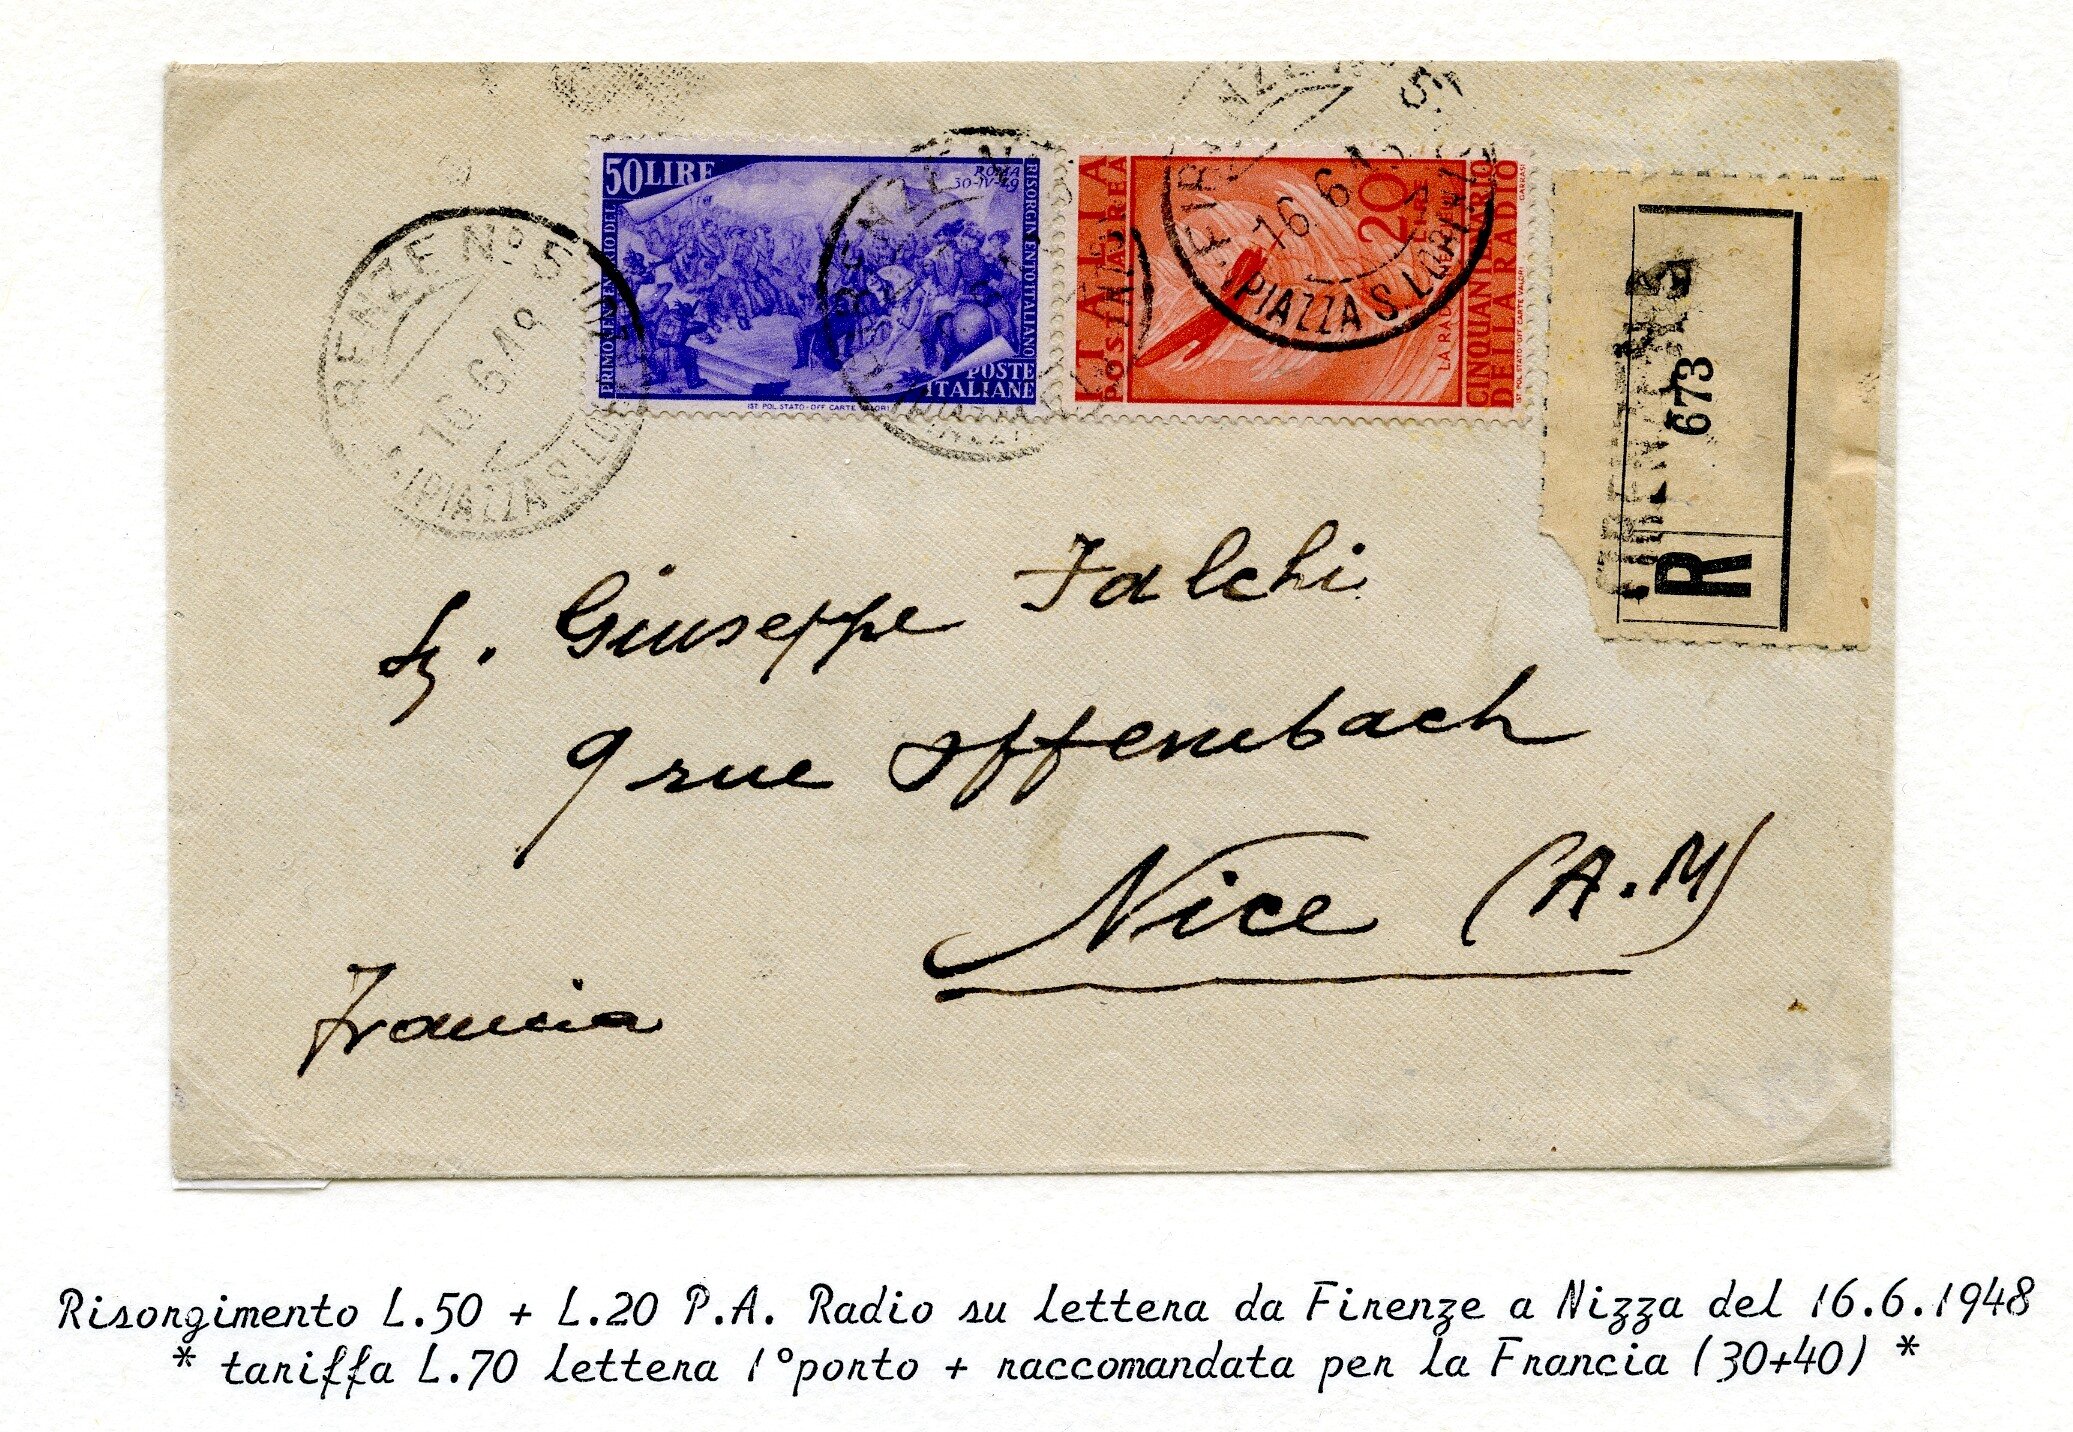 50 LIRE
ROMA
30-IV-49
PRIMO CENTENARIO DEL
RISORGIMENTO ITALIANO
POSTE
ITALIANE
IST. POL. STATO - OFF. CARTE VALORI
ITALIA
POSTA AEREA
20
LIRE
LA RADIO
CINQUANTENARIO
DELLA RADIO
GARRASI
IST. POL. STATO OFF. CARTE VALORI
RENZE Nº 5
16.6.49
PIAZZA S. LOR
16.6.4
PIAZZA S. LOREN
FIRENZE
673
R
Giuseppe Falchi
9 rue Offenbach
Nice (A.M)
Francia
Risorgimento L.50 + L.20 P.A. Radio su lettera da Firenze a Nizza del 16.6.1948
* tariffa L.70 lettera 1°porto + raccomandata per la Francia (30+40) *